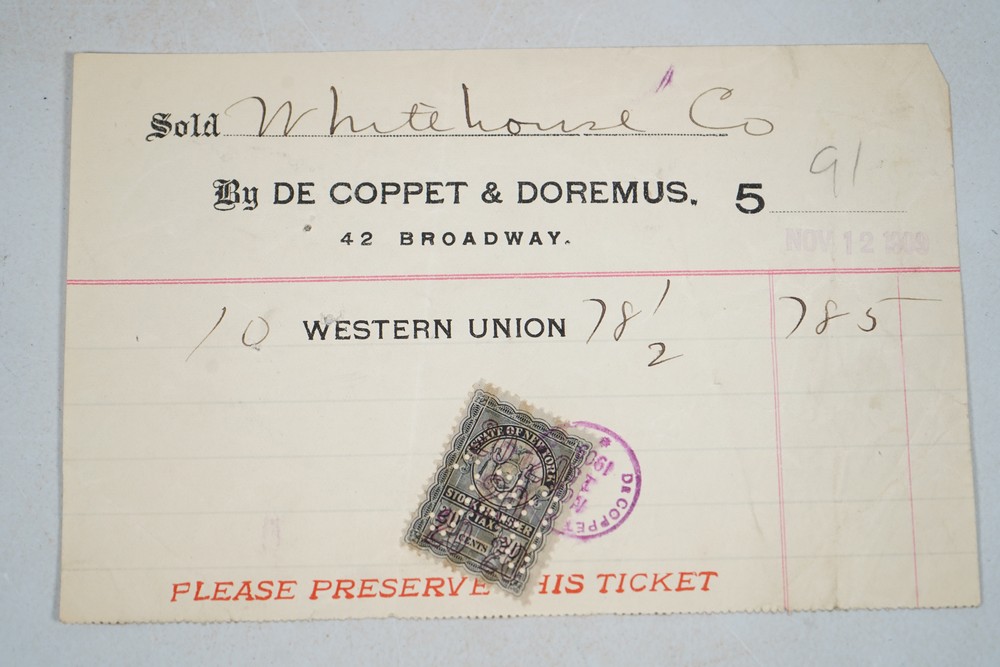 Sold Whitehouse Co
91
By DE COPPET & DOREMUS. 5
42 BROADWAY.
NOV 12 1909
10 WESTERN UNION 78 1/2 785
STATE OF NEW YORK
STOCK TRANSFER
TAX
2 2
CENTS
DE COPPET
PLEASE PRESERVE HIS TICKET